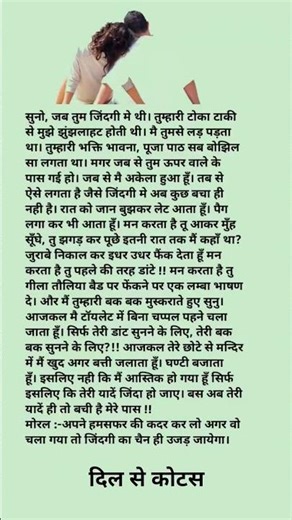 सुनो, जब तुम जिंदगी मे थी। तुम्हारी टोका टाकी
से मुझे झुंझलाहट होती थी। मै तुमसे लड़ पड़ता
था। तुम्हारी भक्ति भावना, पूजा पाठ सब बोझिल
सा लगता था। मगर जब से तुम ऊपर वाले के
पास गई हो। जब से मै अकेला हुआ हूँ। तब से
ऐसे लगता है जैसे जिंदगी मे अब कुछ बचा ही
नही है। रात को जान बुझकर लेट आता हूँ। पैग
लगा कर भी आता हूँ। मन करता है तू आकर मुँह
सूँघे, तु झगड़ कर पूछे इतनी रात तक मैं कहाँ था?
जुराबे निकाल कर इधर उधर फैंक देता हूँ मन
करता है तु पहले की तरह डांटे !! मन करता है तु
गीला तौलिया बैड पर फेंकने पर एक लम्बा भाषण
दे। और मैं तुम्हारी बक बक मुस्कराते हुए सुनु।
आजकल मै टॉयलेट में बिना चप्पल पहने चला
जाता हूँ। सिर्फ तेरी डांट सुनने के लिए, तेरी बक
बक सुनने के लिए?!! आजकल तेरे छोटे से मन्दिर
में मैं खुद अगर बत्ती जलाता हूँ। घण्टी बजाता
हूँ। इसलिए नही कि मैं आस्तिक हो गया हूँ सिर्फ
इसलिए कि तेरी यादें जिंदा हो जाए। बस अब तेरी
यादें ही तो बची है मेरे पास !!
मोरल :-अपने हमसफर की कदर कर लो अगर वो
चला गया तो जिंदगी का चैन ही उजड़ जायेगा।
दिल से कोटस